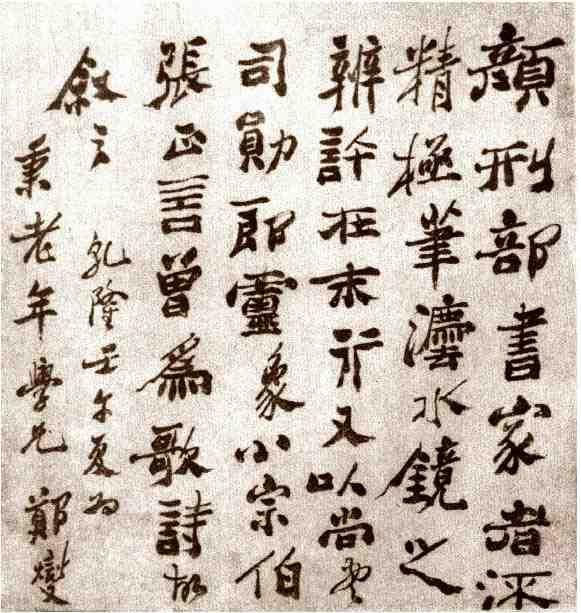 顏刑部書家者流
精極筆灋水鏡之
辨許在末行又以尚書
司勛郎盧象小宗伯
張正言曾爲歌詩故
敘之 乾隆壬午夏为
秉老年學兄 鄭燮